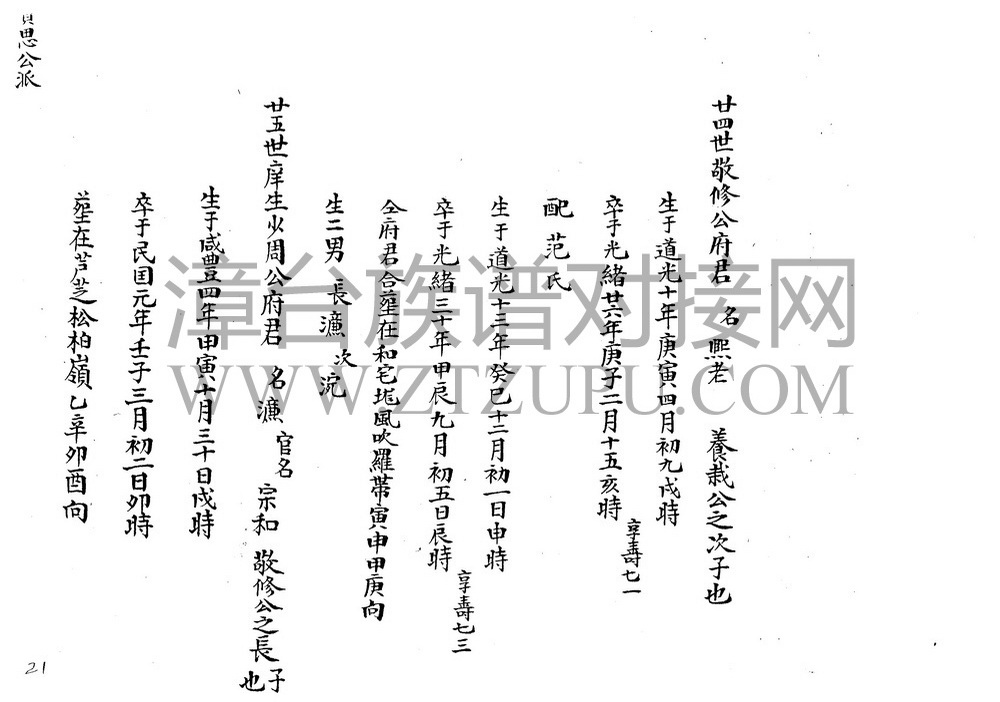 廿四世敬修公府君 名熙老 養栽公之次子也
生于道光十年庚寅四月初九戌時
卒于光緒廿六年庚子二月十五亥時 享壽七一
配范氏
生于道光十三年癸巳十二月初一日申時
卒于光緒三十年甲辰九月初五日辰時 享壽七三
仝府君合塟在和宅垅風吹羅帶寅申甲庚向
生二男 長濂 次沇
廿五世庠生少周公府君 名濂 官名宗和 敬修公之長子也
生于咸豐四年甲寅十月三十日戌時
卒于民国元年壬子三月初二日卯時
塟在芦芝松柏嶺乙辛卯酉向
思公派
21
漳台族谱对接网
WWW.ZTZUPU.COM